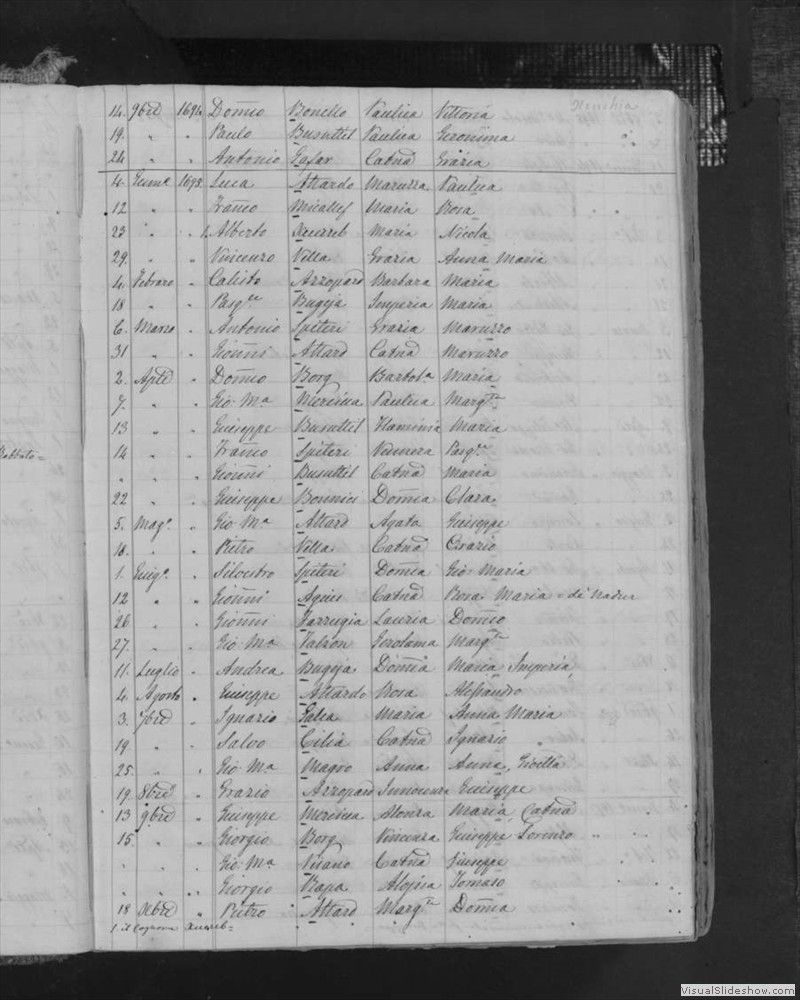 14. 9bre 1694 Domco Bonello Paulica Vittoria
19. " " Paulo Busuttil Paulica Geronima
24 " " Antonio Gafar Catna Grazia
4. Genn.o 1695. Luca Attardo Maruzza Paulica
12 " " Franco Micallef Maria Rosa
23 " " 1. Alberto Xuereb Maria Nicola
29. " " Vincenzo Vella Grazia Anna Maria
4. Febraro " Calisto Azzopard Barbara Maria
18 " " Pasq.le Bugeja Imperia Maria
6. Marzo " Antonio Spiteri Grazia Maruzzo
31 " " Gionni Attard Catna Maruzzo
2. Aple " Domco Borg Bartol.a Maria
7. " " Gio: Ma Mercieca Paulica Marg.ta
13 " " Giuseppe Busuttil Flaminia Maria
14 " " Franco Spiteri Pasq.le
Gionni Busuttil Catna Maria
22 " " Giuseppe Bonnici Domca Clara
5. Mag.o " Gio: Ma Attard Agata Giuseppe
18. " " Pietro Vella Catna Grazio
1. Giug.o " Silvestro Spiteri Domca Gio: Maria
12 " " Gionni Agius Catna Rosa Maria = di Nadur
26 " " Gionni Farrugia Lauria Domco
27. " " Gio: Ma Falzon Gerolama Marg.ta
11. Luglio " Andrea Bugeja Domca Maria, Imperia
4. Agosto " Giuseppe Attardo Rosa Alessandro
3. 7bre " Ignazio Galea Maria Anna Maria
19. " " Salvo Cilia Catna Ignazio
25. " " Gio: Ma Magro Anna Anna, Gioella
19. 8bre " Grazio Azzopard Giuseppe
13 9bre " Giuseppe Mercieca Alonza Maria, Catna
15. " " Giorgio Borg Vincenza Giuseppe Lorenzo
" " " Gio: Ma Catna Giuseppe
" " " Giorgio Rapa Aloisia Tomaso
18 Xbre " Pietro Attard Marg.ta Domca
1. il Cognome Xuereb =
VisualSlideshow.com